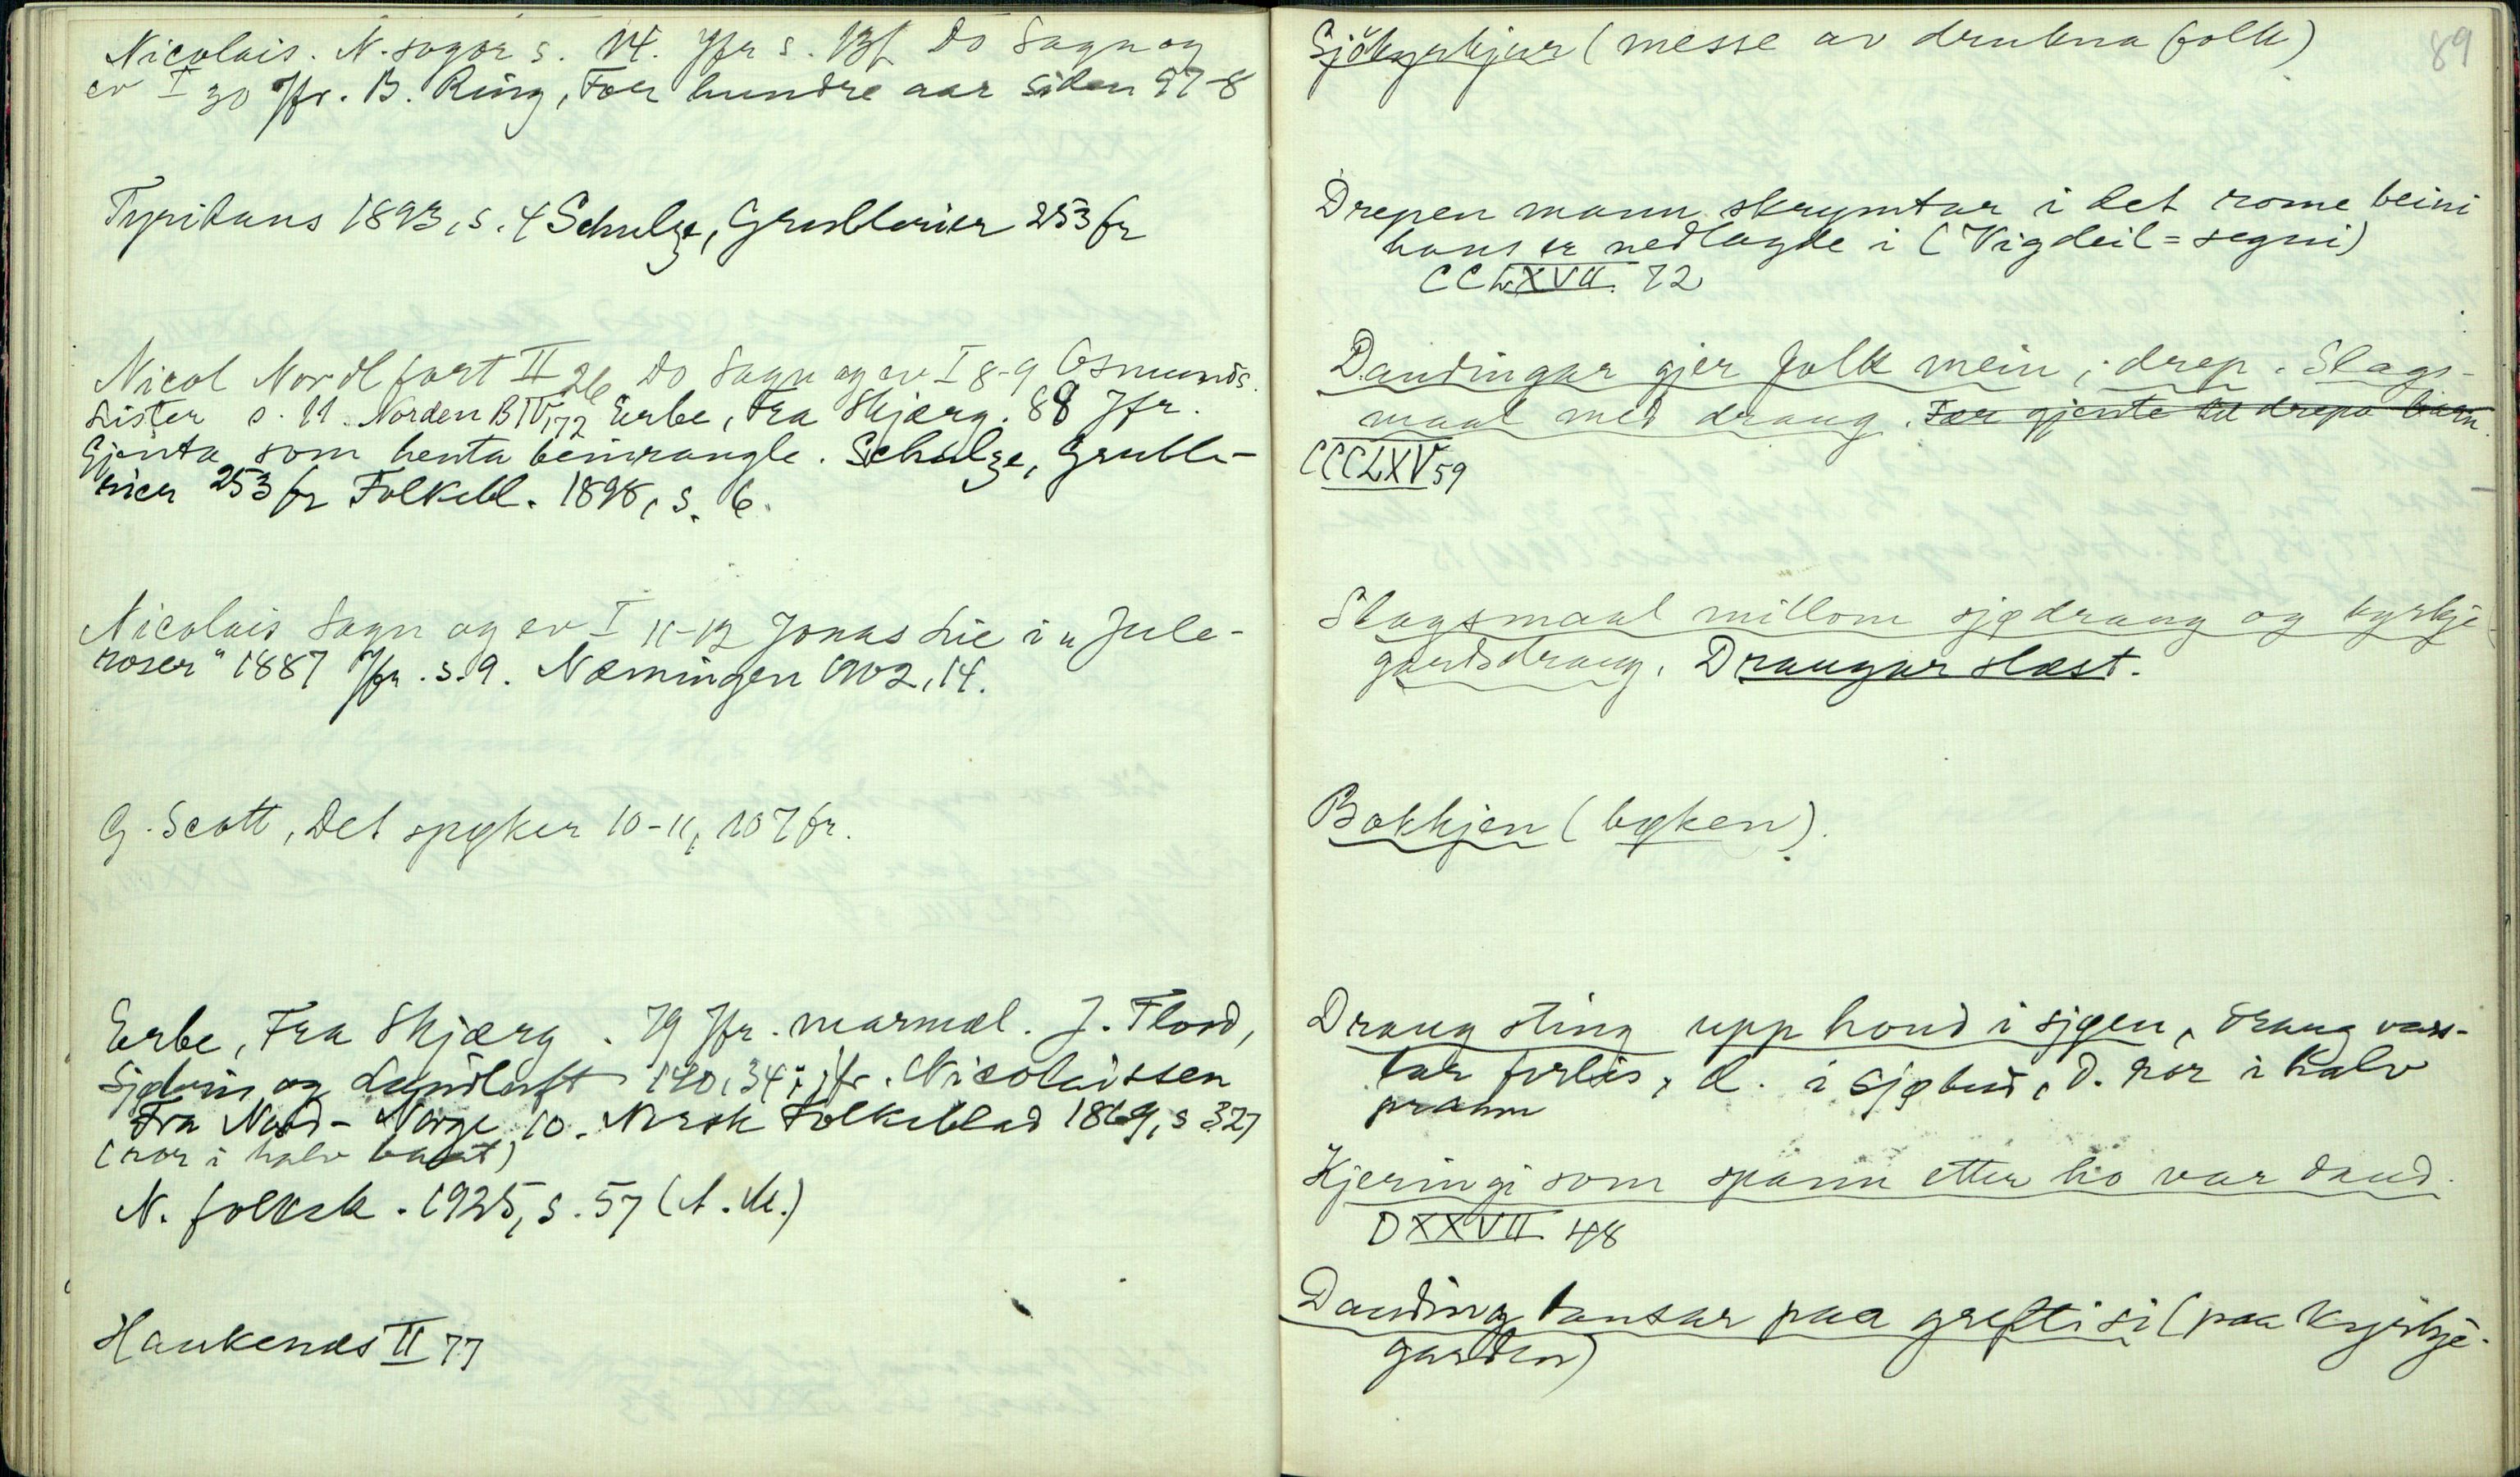 Nicolais. N. sogor s. 14. Jfr s. 13f. Do Sagn og
ev I 30 Jfr. B. Ring, For hundre aar siden 97-8
Tyrihans 1893, s. 4 Schulze, Grublerier 253 fr
Nicol Nordl fort II 26 Do Sagn og ev I 8-9 Osmunds.
Lister s. 11. Norden B IV, 72 Erbe, Fra Skjærg. 88 Jfr.
Gjenta som henta beinrangle. Schulze, Gruble-
rier 253 fr Folkebl. 1898, s. 6.
Nicolais Sagn og ev I 11-12 Jonas Lie i "Jule-
roser" 1887 Jfr. s. 9. Næmingen 1902, 14.
G. Scott, Det spøker 10-11, 107 fr.
Erbe, Fra Skjærg. 79 Jfr. marmæl. J. Flood,
Sjøbris og Landluft 120, 34; jfr. Nicolaissen
Fra Nord-Norge 10. Norsk Folkeblad 1869, s 327
(ror i halv baat)
N. folkek. 1925, s. 57 (A. M.)
Haukenæs II 77
89
Sjökyrkjur (messe av drukna folk)
Drepen mann skrymtar i det rome beini
hans er nedlagde i (Vigdeil = segni)
CCLXVII 72
Daudingar gjer folk mein; drep. Slags-
maal med draug. Fær gjente til drepa barn.
CCCLXV 59
Slagsmaal millom sjødraug og kyrkje
gardsdraug. Draugar slæst.
Bokkjen (bøken).
Draug sting upp hond i sjøen, draug vars-
lar forlis, d. i sjøbud, D. ror i halv
pram
Kjeringi som spann etter ho var daud.
DXXVII 48
Dauding dansar paa grefti si (paa kyrkje-
garden)